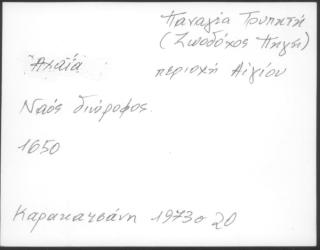 Παναγία Τουπητή
(Ζωοδόχος Πηγή)
Αχαΐα
περιοχή Αιγίου
Ναός διώροφος.
1650
Καρακατσάνη 1973σ 20